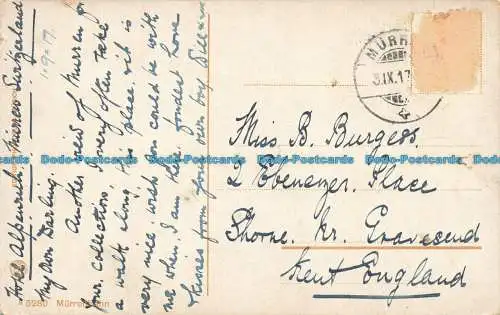 Hotel Alpenruhe Mürren Switzerland
1-9-17
My Own Darling.
Another view of Murren for
your collection. I very often take
a walk along this place, it is
very nice, wish you could be with
me when I am there. Fondest love
& kisses from your own boy Bill xx
5280 Mürrenbahn
MÜRR
3.IX.17
Miss B. Burgess.
2 Ebenezer Place
Shorne. Nr. Gravesend
Kent England
Dodo-Postcards Dodo-Postcards Dodo-Postcards Dodo-Postcards